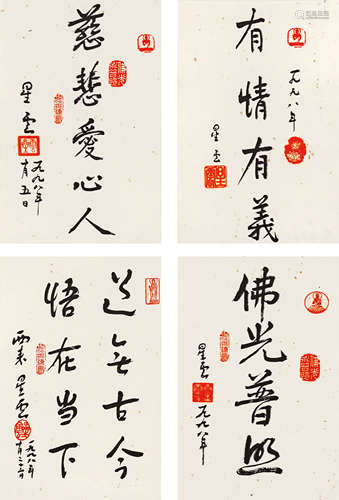 有情有義
一九九八年
星云
慈悲愛心人
星云
一九九八年
十月五日
佛光普照
星云
一九九八年
道無古今
悟在当下
西来 星云
一九九八年